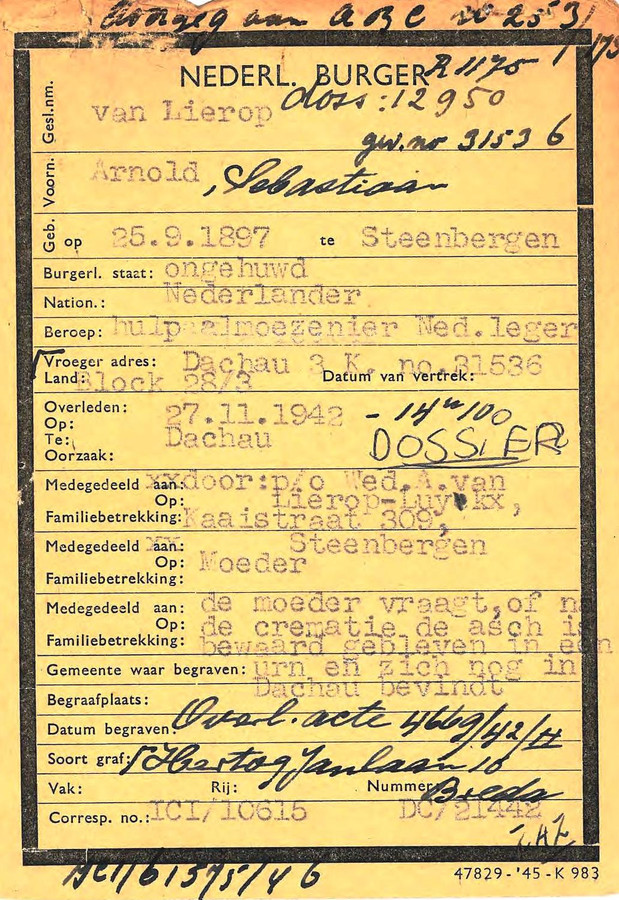 aan A B C
NEDERL. BURGER R 1175
doss: 12950
Gesl.nm. van Lierop
gev. no 31536
Voorn. Arnold, Sebastiaan
Geb. op 25.9.1897 te Steenbergen
Burgerl. staat: ongehuwd
Nation.: Nederlander
Beroep: hulpaalmoezenier Ned.leger
Vroeger adres: Dachau 3 K. no.31536
Land: Block 28/3 Datum van vertrek:
Overleden:
Op: 27.11.1942 - 14 u 100
Te: Dachau DOSSIER
Oorzaak:
Medegedeeld aan: xxdoor:p/o Wed.A.van
Op: Lierop-Luyckx,
Familiebetrekking: Kaaistraat 309,
Medegedeeld aan: xx Steenbergen
Op: Moeder
Familiebetrekking:
Medegedeeld aan: de moeder vraagt,of na
Op: de crematie de asch is
Familiebetrekking: bewaard gebleven in een
Gemeente waar begraven: urn en zich nog in
Begraafplaats: Dachau bevindt
Datum begraven: Overl. acte 4669/42/H
Soort graf: Hertog Janlaan 10
Vak: Rij: Nummer: Breda
Corresp. no.: ICI/10615 DC/21442
47829-'45-K 983